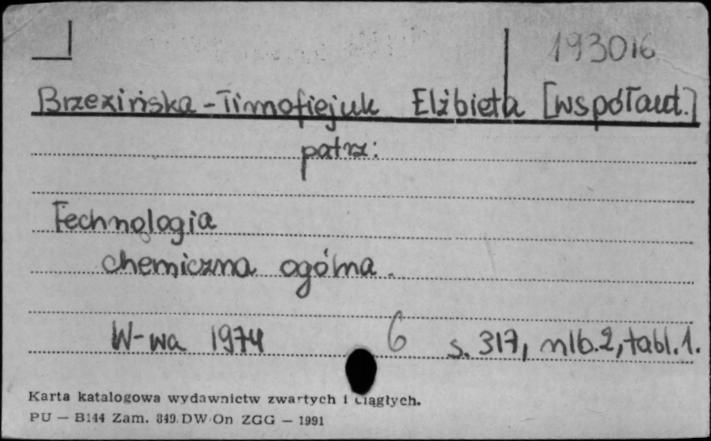 193016
Brzezińska-Timofiejuk Elżbieta [współaut.]
patrz:
Technologia
chemiczna ogólna.
W-wa 1974 6 s. 317, nlb. 2, tabl. 1.
Karta katalogowa wydawnictw zwartych i ciągłych.
PU — B144 Zam. 849. DW On ZGG — 1991